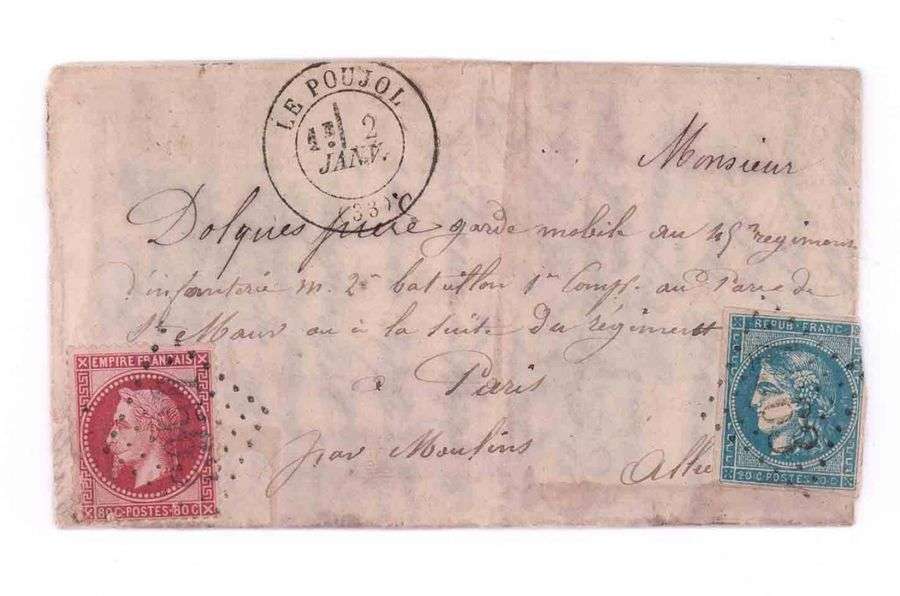 LE POUJOL
1E 2
JANV.
(33)
Monsieur
Dolques frère garde mobile au 45e regiment
d'infanterie m. 2e bataillon 1e Compe. au Parc de
St Maur ou à la suite du régiment
a Paris
par Moulins
Allie
EMPIRE FRANÇAIS
80 C POSTES 80 C
REPUB FRANC
20 C POSTES 20 C